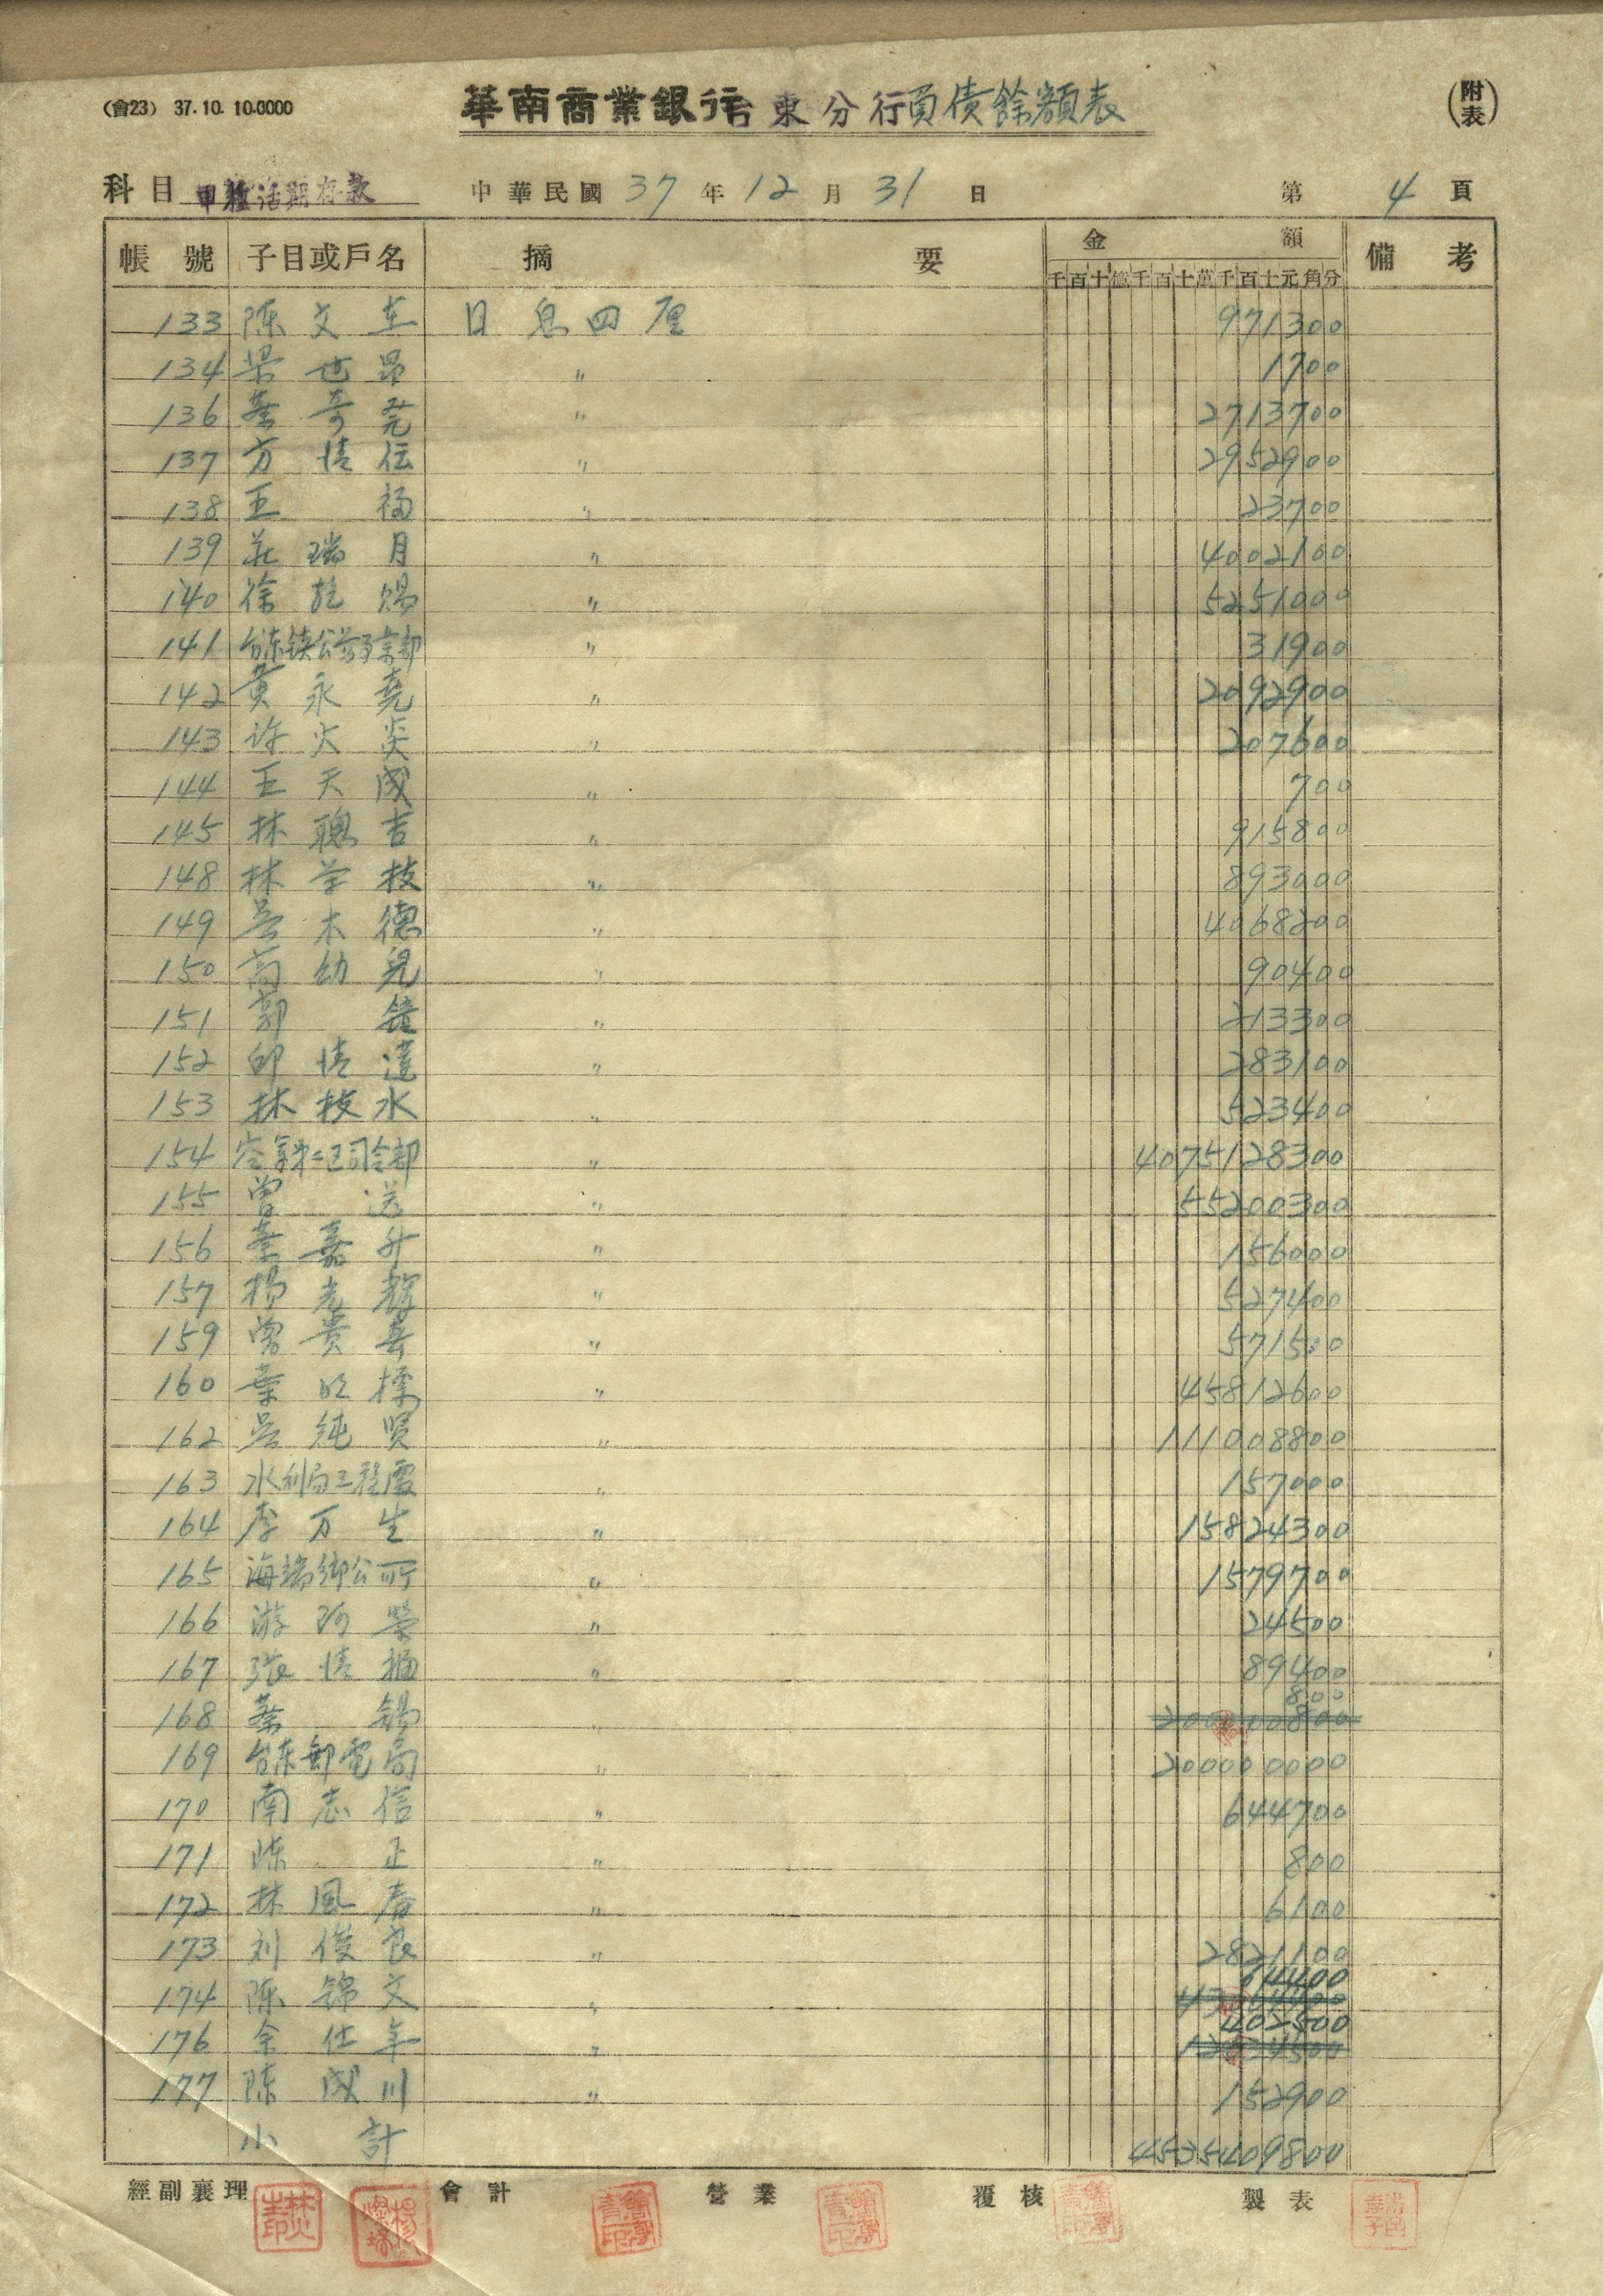 (會23) 37.10.10.0000
華南商業銀行台東分行負債餘額表
(附表)
科目 甲種活期存款 中華民國37年12月31日 第4頁
帳號 子目或戶名 摘要 金額 備考
千百十億千百十萬千百十元角分
133 陈文生 日息四厘 971300
134 梁世昂 〃 1700
136 蔡奇尧 〃 2713700
137 方情伝 〃 2952900
138 王福 〃 23700
139 莊瑞月 〃 4002100
140 徐乾賜 〃 5251000
141 〃 31900
142 黄永堯 〃 2092900
143 许火炎 〃 207600
144 王天成 〃 700
145 林聰吉 〃 915800
148 林 枝 〃 893000
149 吳木德 〃 4068200
150 高幼兒 〃 90400
151 郭鐘 〃 213300
152 邱情達 〃 283100
153 林枝水 〃 523400
154 司令部 〃 4075128300
155 曾送 〃 55200300
156 嘉升 〃 156000
157 楊光輝 〃 527400
159 曾贵喜 〃 571500
160 葉 〃 45812600
162 吳純賢 〃 111008800
163 水利局工程處 〃 157000
164 李万生 〃 15824300
165 海端鄉公所 〃 1579700
166 游阿榮 〃 24500
167 張情福 〃 89400
800
168 蔡錫 〃 200000800
169 台东郵電局 〃 200000000
170 南志信 〃 644700
171 陈正 〃 800
172 林風春 〃 6100
173 刘俊良 〃 2821100
64400
174 陈錦文 〃
402500
176 余仕年 〃
177 陈成川 〃 152900
小計 4525409800
經副襄理 會計 營業 覆核 製表